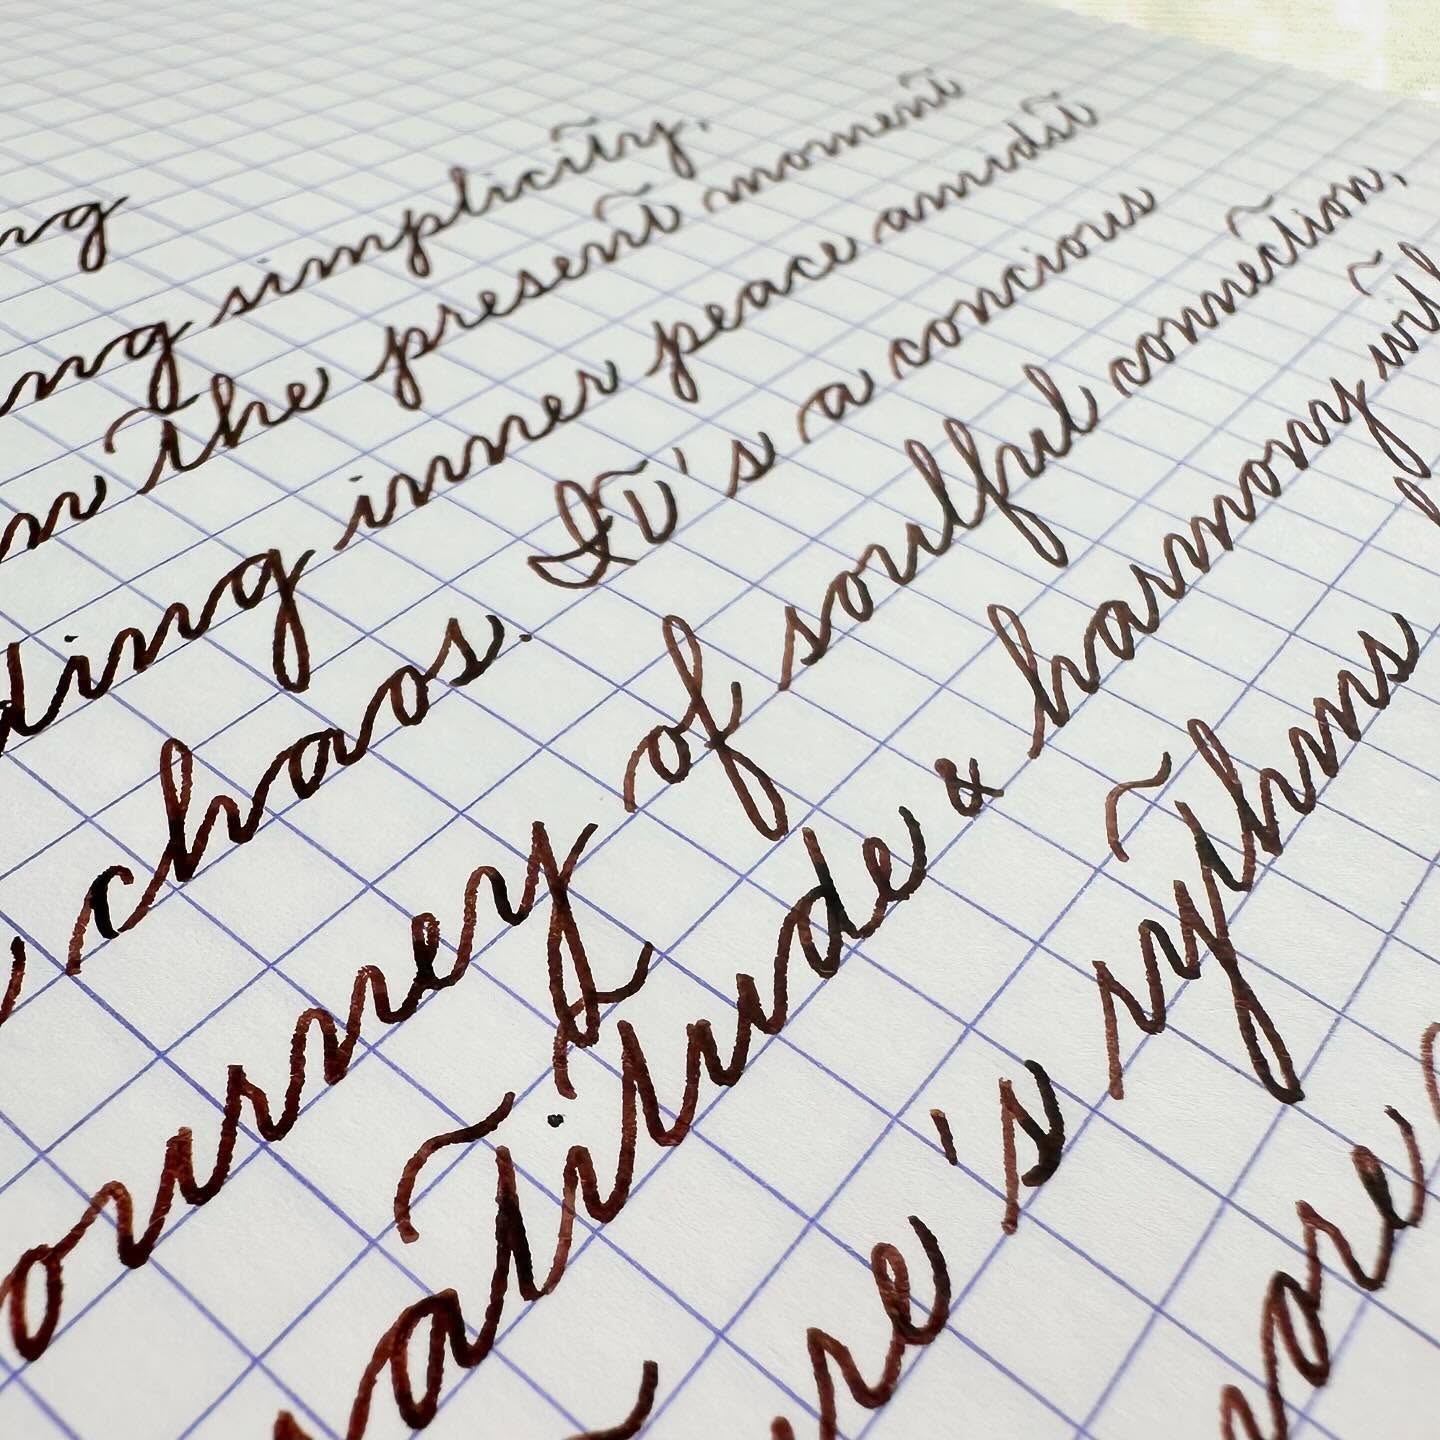 ng
ng simplicity,
n the present moment
ding inner peace amidst
chaos. It's a concious
ourney of soulful connection,
atitude & harmony with
re's rythms
are